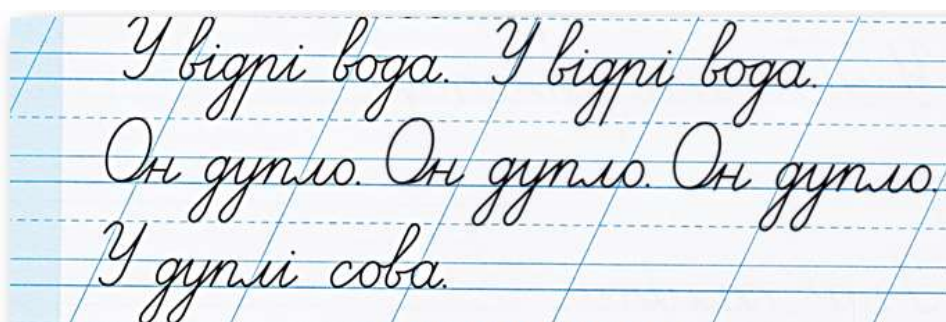 У відрі вода. У відрі вода.
Он дупло. Он дупло. Он дупло.
У дуплі сова.